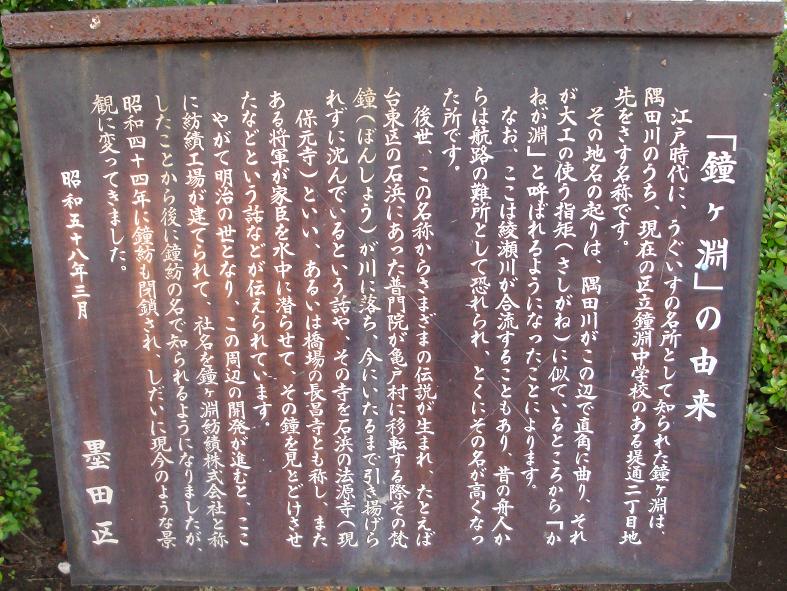 「鐘ヶ淵」の由来
江戸時代に、うぐいすの名所として知られた鐘ヶ淵は、
隅田川のうち、現在の区立鐘淵中学校のある堤通二丁目地
先をさす名称です。
その地名の起りは、隅田川がこの辺で直角に曲り、それ
が大工の使う指矩(さしがね)に似ているところから「か
ねが淵」と呼ばれるようになったことによります。
なお、ここは綾瀬川が合流することもあり、昔の舟人か
らは航路の難所として恐れられ、とくにその名が高くなっ
た所です。
後世、この名称からさまざまの伝説が生まれ、たとえば
台東区の石浜にあった普門院が亀戸村に移転する際その梵
鐘(ぼんしょう)が川に落ち、今にいたるまで引き揚げら
れずに沈んでいるという話や、その寺を石浜の法源寺(現
保元寺)といい、あるいは橋場の長昌寺とも称し、また
ある将軍が家臣を水中に潜らせて、その鐘を見とどけさせ
たなどという話などが伝えられています。
やがて明治の世となり、この周辺の開発が進むと、ここ
に紡績工場が建てられて、社名を鐘ヶ淵紡績株式会社と称
したことから後に鐘紡の名で知られるようになりましたが、
昭和四十四年に鐘紡も閉鎖され、しだいに現今のような景
観に変ってきました。
昭和五十八年三月
墨田区